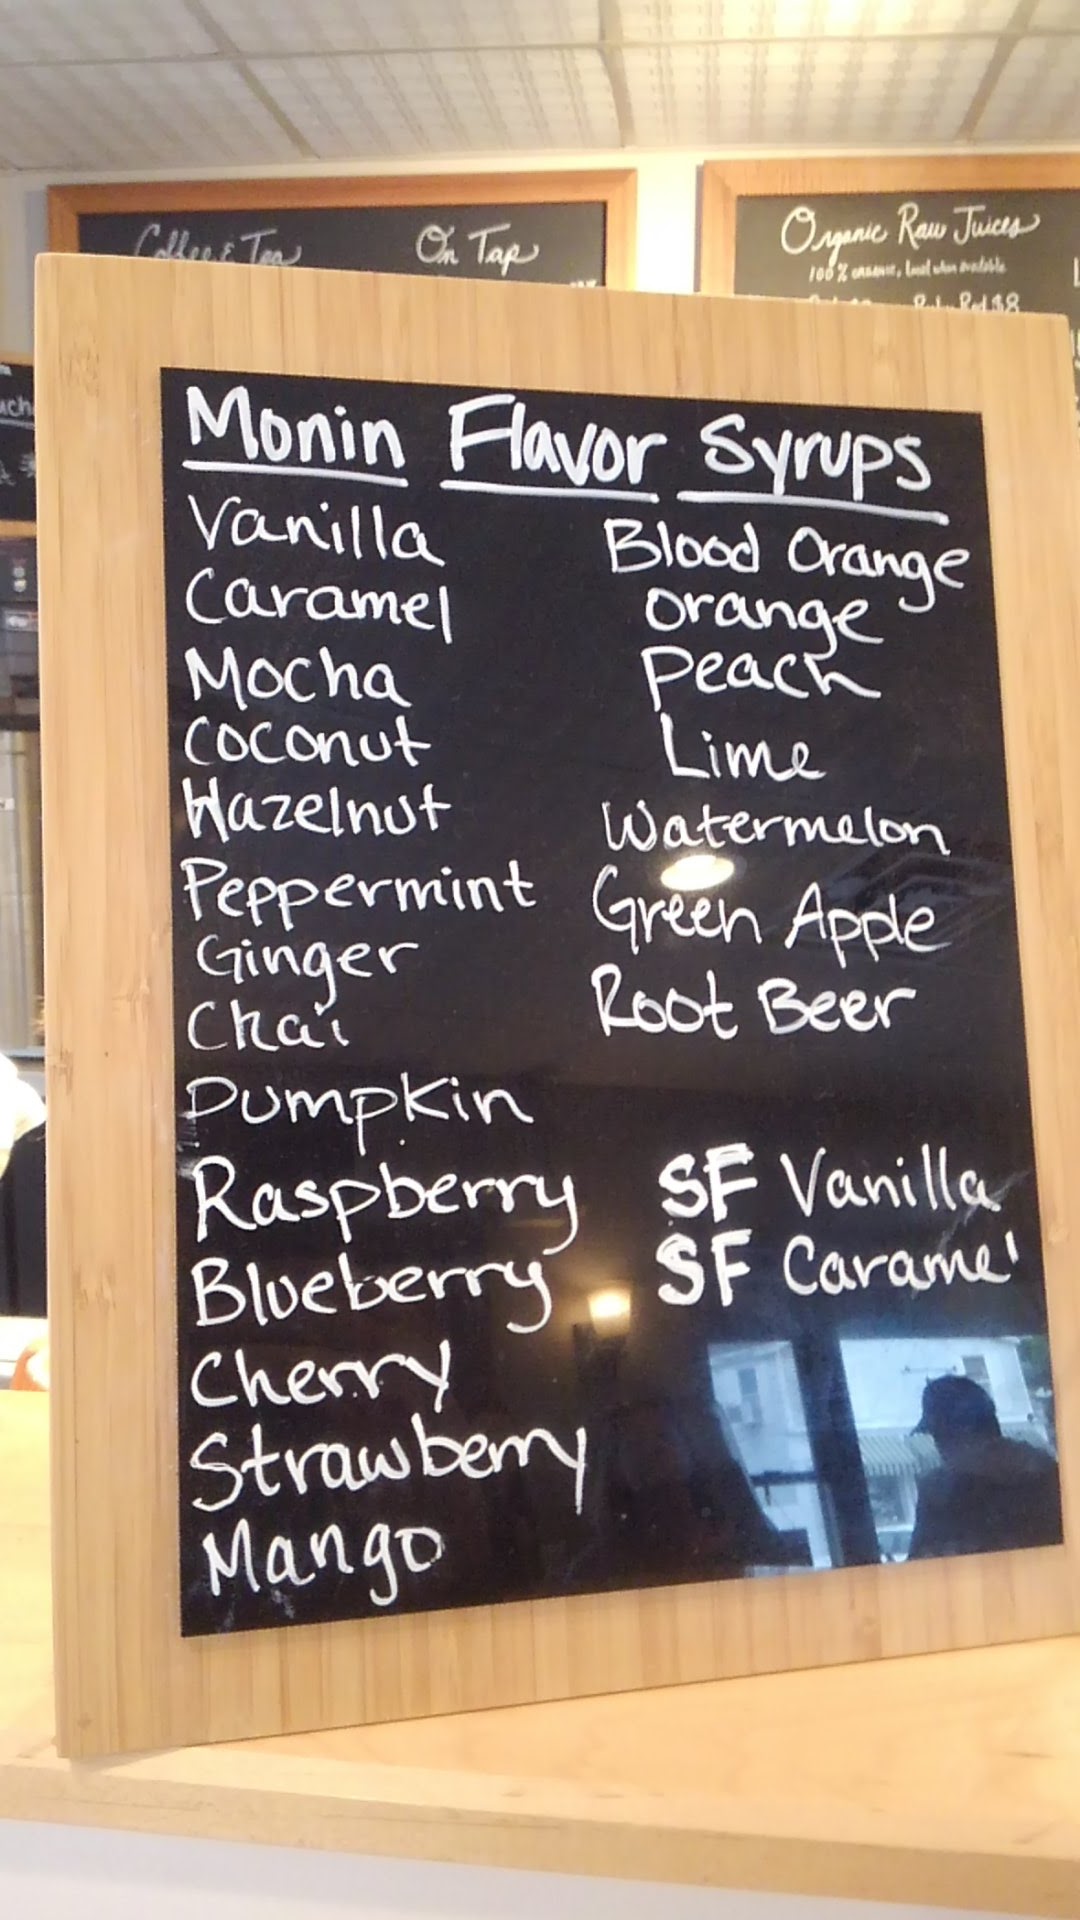 Coffee & Tea
On Tap
Organic Raw Juices
100% organic, local when available
Red $8
Monin Flavor Syrups
Vanilla
Caramel
Mocha
Coconut
Hazelnut
Peppermint
Ginger
Chai
Pumpkin
Raspberry
Blueberry
Cherry
Strawberry
Mango
Blood Orange
Orange
Peach
Lime
Watermelon
Green Apple
Root Beer
SF Vanilla
SF Caramel